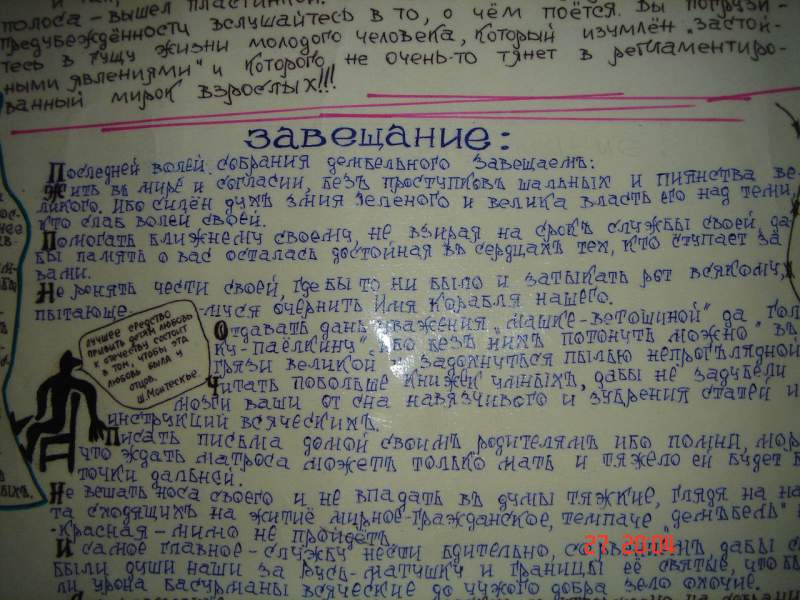 полоса - вышел пластинкой.
предубеждённости вслушайтесь в то, о чём поётся. Вы погрузи-
тесь в гущу жизни молодого человека, который изумлён „застой-
ными явлениями" и которого не очень-то тянет в регламентиро-
ванный мирок взрослых!!!
завещание:
Последней волей собрания дембельного завещаемъ:
Жить въ мирѣ и согласии, безъ проступковъ шальных и пиянства ве-
ликого. Ибо силён духъ змия зеленого и велика власть его над теми,
кто слаб волей своей.
Помогать ближнему своему, не взирая на срокъ службы своей, да-
бы память о вас осталась достойная въ сердцахъ тех, кто ступает за
вами.
Не ронять чести своей, где бы то ни было и затыкать рот всякому,
пытающемуся очернить имя корабля нашего.
Отдавать дань уважения „Машке-ветошиной" да
ку-паёлкину", ибо безъ нихъ потонуть можно въ
грязи великой задохнуться пылью непроглядной
Читать побольше книжек умныхъ, дабы не задубели
мозги ваши от сна навязчивого и зубрения статей и
инструкций всяческихъ.
Писать письма домой своимъ родителямъ ибо помни,
что ждать матроса можетъ только мать и тяжело ей будет
точки дальней.
Не вешать носа своего и не впадать въ думы тяжкие, глядя на
та сходящихъ на житиё мирное-гражданское, темпаче „демъбель"
-Красная - мимо не пройдётъ.
И самое главное - службу нести бдительно, дабы
были души наши за Русь-матушку и границы её святые, что
ли урона басурманы всяческие до чужого добра зело охочие.
лучшее средство
привить детям любовь
к отечеству состоит
в том, чтобы эта
любовь была у
отцов.
Ш. Монтескье.
27. 20:04